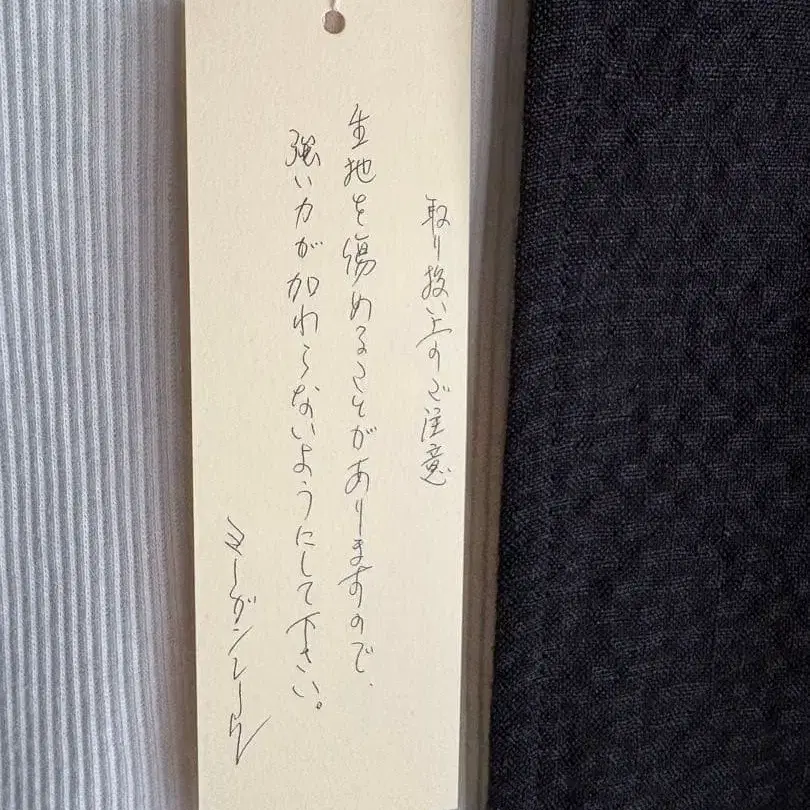 取り扱い上のご注意
生地を傷めることがありますので、
強い力が加わらないようにして下さい。
マーガレーウ